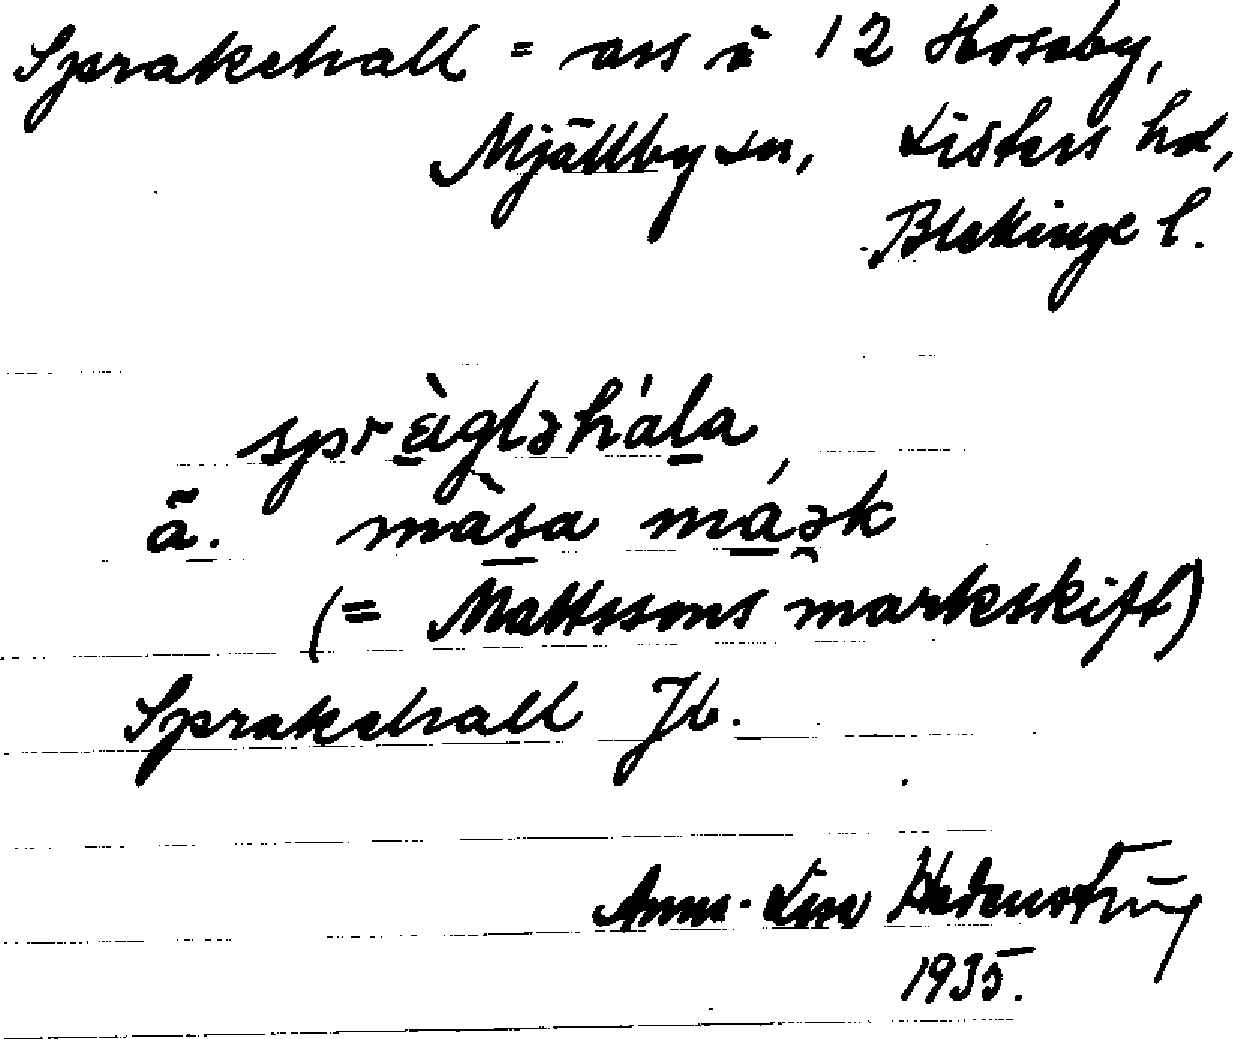 Sprakehall = ans i 12 Hosaby,
Mjällby sn, Listers hd,
Blekinge l.
sprὲgləhála
ä. màsa máək
(= Mattssons markskift)
Sprakehall Jb.
Anna-Lisa Hedenström
1935.